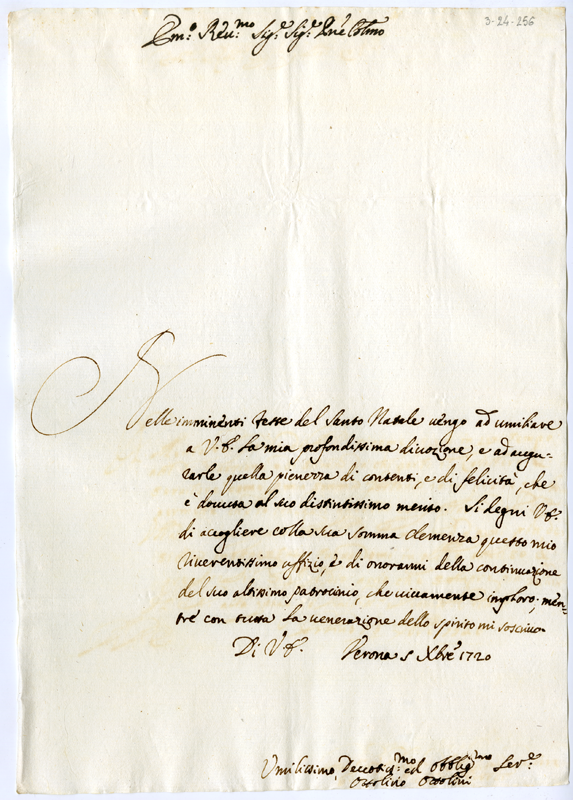 3-24-256
Em:o Rev:mo Sig:e Sig:e Pne Colmo
Nelle imminenti feste del Santo Natale vengo ad umiliare
a V.E. la mia profondissima divozione, e ad augu-
rarle quella pienezza di contenti, e di felicità, che
è dovuta al suo distintissimo merito. Si degni V.E.
di accogliere colla sua somma clemenza questo mio
riverentissimo uffizio, è di onorarmi della continuazione
del suo altissimo patrocinio, che vivamente imploro. men-
tre con tutta la venerazione dello spirito mi soscrivo
Di V.E. Verona 5 Xbre 1720
Umilissimo, Devotis:mo ed Obblig:mo Serv:e
Ottolino Ottolini